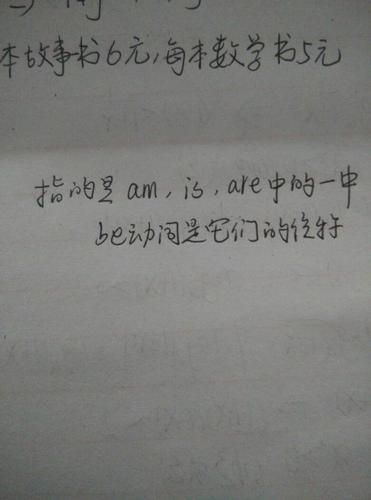 本故事书6元,每本数学书5元
指的是am,is,are中的一中
be动词是它们的统称